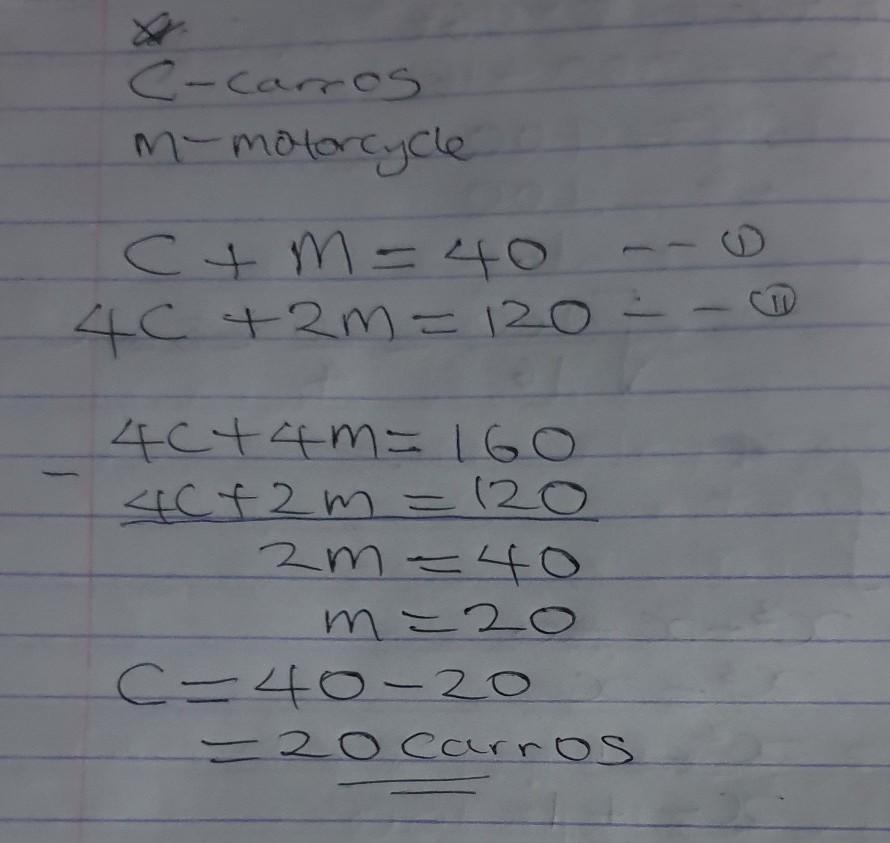 C-carros
m-motorcycle
C + m = 40 -- ①
4C + 2m = 120 -- ⑪
4C + 4m = 160
- 4C + 2m = 120
2m = 40
m = 20
C = 40 - 20
= 20 carros